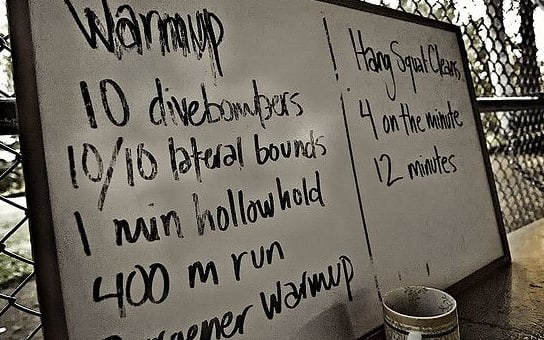 Warmup
10 divebombers
10/10 lateral bounds
1 min hollow hold
400 m run
Warmup
Hang Squat Cleans
4 on the minute
12 minutes